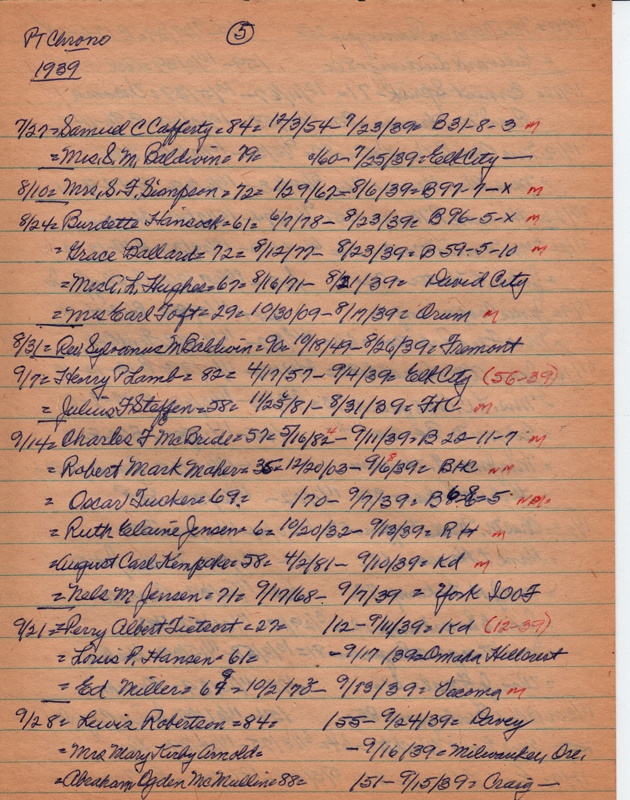 PT Chrono 5
1939
7/27 = Samuel C Cafferty = 84 = 12/3/54 - 7/23/39 = B31-8-3 m
= Mrs S. M. Baldwin = 79 = /60 - 7/25/39 = Elk City —
8/10 = Mrs. S. F. Simpson = 72 = 1/29/67 - 8/6/39 = B97-7-X m
8/24 = Burdette Hancock = 61 = 6/7/78 - 8/23/39 = B96-5-X m
= Grace Ballard = 72 = 8/12/77 - 8/23/39 = B59-5-10 m
= Mrs A. L. Hughes = 67 = 8/16/71 - 8/21/39 = David City
= Mrs Earl Toft = 29 = 10/30/09 - 8/17/39 = Orum m
8/31 = Rev Sylvanus M Baldwin = 90 = 10/18/49 - 8/26/39 = Fremont
9/7 = Henry P Lamb = 82 = 4/17/57 - 9/4/39 = Elk City (56-39)
= Julius F Steffen = 58 = /81 - 8/31/39 = FtC m
9/14 = Charles F McBride = 57 = 5/16/82 4 - 9/11/39 = B 22-11-7 m
= Robert Mark Maher = 35 = 12/20/03 - 9/6 8/39 = BHC nm
= Oscar Tucker = 69 = /70 - 9/7/39 = B
= Ruth Elaine Jensen = 6 = 10/20/32 - 9/13/39 = RH m
= August Carl Kempcke = 58 = 4/2/81 - 9/10/39 = Kd m
= Nels M Jensen = 71 = 9/17/68 - 9/7/39 = York IOOF
9/21 = Perry Albert Tietsort = 27 = /12 - 9/11/39 = Kd (12-39)
= Louis P. Hansen = 61 = - 9/17/39 = Omaha Hillcrest
= Ed Miller = 69 = 10/2/73 - 9/13/39 = Tacoma m
9/28 = Lewis Robertson = 84 = /55 - 9/24/39 = Davey
= Mrs Mary Kirby Arnold = - 9/16/39 = Milwaukey, Ore.
= Abraham Ogden McMulline 88 = /51 - 9/15/39 = Craig —